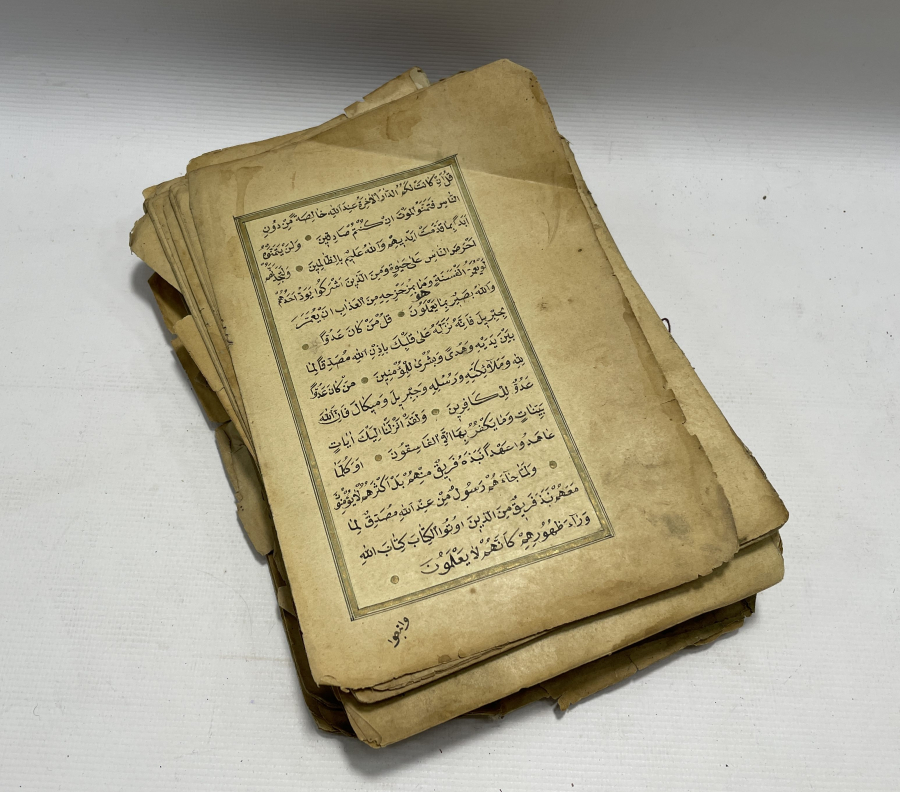 قُلْ اِنْ كَانَتْ لَكُمُ الدَّارُ الْاٰخِرَةُ عِنْدَ اللّٰهِ خَالِصَةً مِنْ دُونِ
النَّاسِ فَتَمَنَّوُا الْمَوْتَ اِنْ كُنْتُمْ صَادِقِينَ وَلَنْ يَتَمَنَّوْهُ
اَبَدًا بِمَا قَدَّمَتْ اَيْدِيهِمْ وَاللّٰهُ عَلِيمٌ بِالظَّالِمِينَ وَلَتَجِدَنَّهُمْ
اَحْرَصَ النَّاسِ عَلٰى حَيٰوةٍ وَمِنَ الَّذِينَ اَشْرَكُوا يَوَدُّ اَحَدُهُمْ
لَوْ يُعَمَّرُ اَلْفَ سَنَةٍ وَمَا هُوَ بِمُزَحْزِحِهِ مِنَ الْعَذَابِ اَنْ يُعَمَّرَ
وَاللّٰهُ بَصِيرٌ بِمَا يَعْمَلُونَ قُلْ مَنْ كَانَ عَدُوًّا
لِجِبْرِيلَ فَاِنَّهُ نَزَّلَهُ عَلٰى قَلْبِكَ بِاِذْنِ اللّٰهِ مُصَدِّقًا لِمَا
بَيْنَ يَدَيْهِ وَهُدًى وَبُشْرٰى لِلْمُؤْمِنِينَ مَنْ كَانَ عَدُوًّا
لِلّٰهِ وَمَلَائِكَتِهِ وَرُسُلِهِ وَجِبْرِيلَ وَمِيكَالَ فَاِنَّ اللّٰهَ
عَدُوٌّ لِلْكَافِرِينَ وَلَقَدْ اَنْزَلْنَا اِلَيْكَ اٰيَاتٍ
بَيِّنَاتٍ وَمَا يَكْفُرُ بِهَا اِلَّا الْفَاسِقُونَ اَوَكُلَّمَا
عَاهَدُوا عَهْدًا نَبَذَهُ فَرِيقٌ مِنْهُمْ بَلْ اَكْثَرُهُمْ لَا يُؤْمِنُونَ
وَلَمَّا جَاءَهُمْ رَسُولٌ مِنْ عِنْدِ اللّٰهِ مُصَدِّقٌ لِمَا
مَعَهُمْ نَبَذَ فَرِيقٌ مِنَ الَّذِينَ اُوتُوا الْكِتَابَ كِتَابَ اللّٰهِ
وَرَاءَ ظُهُورِهِمْ كَاَنَّهُمْ لَا يَعْلَمُونَ
واتبعوا